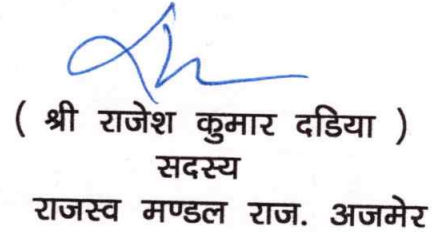 ( श्री राजेश कुमार दडिया )
सदस्य
राजस्व मण्डल राज. अजमेर